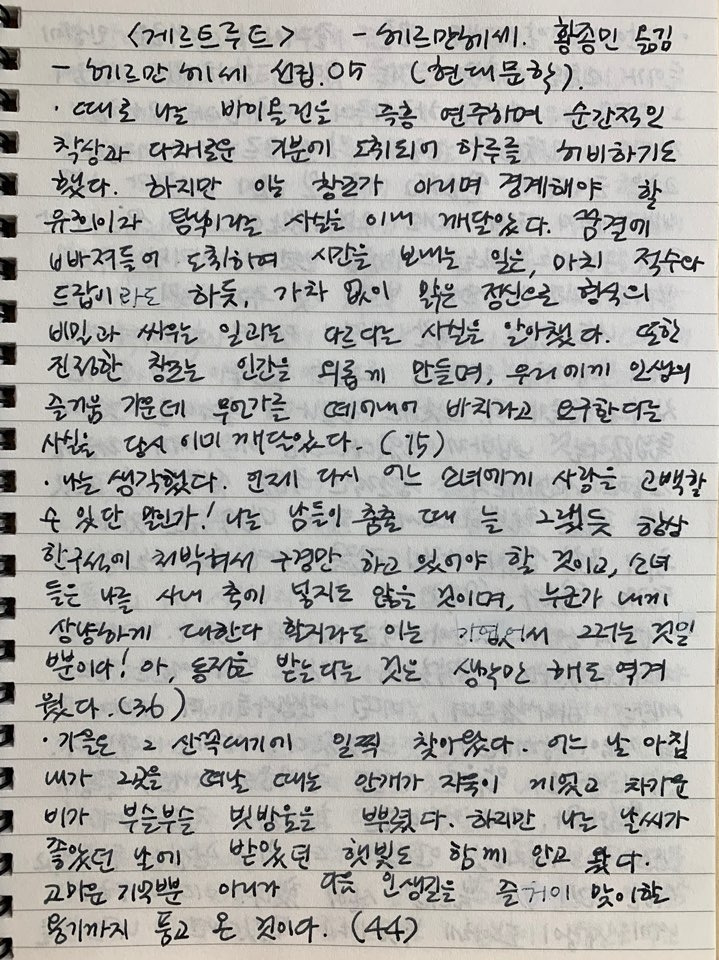 <게르트루트> - 헤르만헤세. 황종민 옮김
- 헤르만 헤세 선집.05 (현대문학).
· 때로 나는 바이올린을 즉흥 연주하며 순간적인
착상과 다채로운 기분에 도취되어 하루를 허비하기도
했다. 하지만 이는 창조가 아니며 경계해야 할
유희이자 탐닉이라는 사실을 이내 깨달았다. 꿈결에
빠져들어 도취하여 시간을 보내는 일은, 마치 적수와
드잡이라도 하듯, 가차 없이 맑은 정신으로 형식의
비밀과 싸우는 일과는 다르다는 사실을 알아챘다. 또한
진정한 창조는 인간을 외롭게 만들며, 우리에게 인생의
즐거움 가운데 무언가를 떼어내어 바치라고 요구한다는
사실을 당시 이미 깨달았다. (15)
· 나는 생각했다. 언제 다시 어느 소녀에게 사랑을 고백할
수 있단 말인가! 나는 남들이 춤출 때 늘 그랬듯 항상
한구석에 처박혀서 구경만 하고 있어야 할 것이고, 소녀
들은 나를 사내 축에 넣지도 않을 것이며, 누군가 내게
상냥하게 대한다 할지라도 이는 가엾어서 그러는 것일
뿐이다! 아, 동정을 받는다는 것은 생각만 해도 역겨
웠다.(36)
· 가을은 그 산꼭대기에 일찍 찾아왔다. 어느 날 아침
내가 그곳을 떠날 때는 안개가 자욱이 끼었고 차가운
비가 부슬부슬 빗방울을 뿌렸다. 하지만 나는 날씨가
좋았던 날에 받았던 햇빛도 함께 안고 왔다.
고마운 기억뿐 아니라 다음 인생길을 즐거이 맞이할
용기까지 품고 온 것이다. (44)